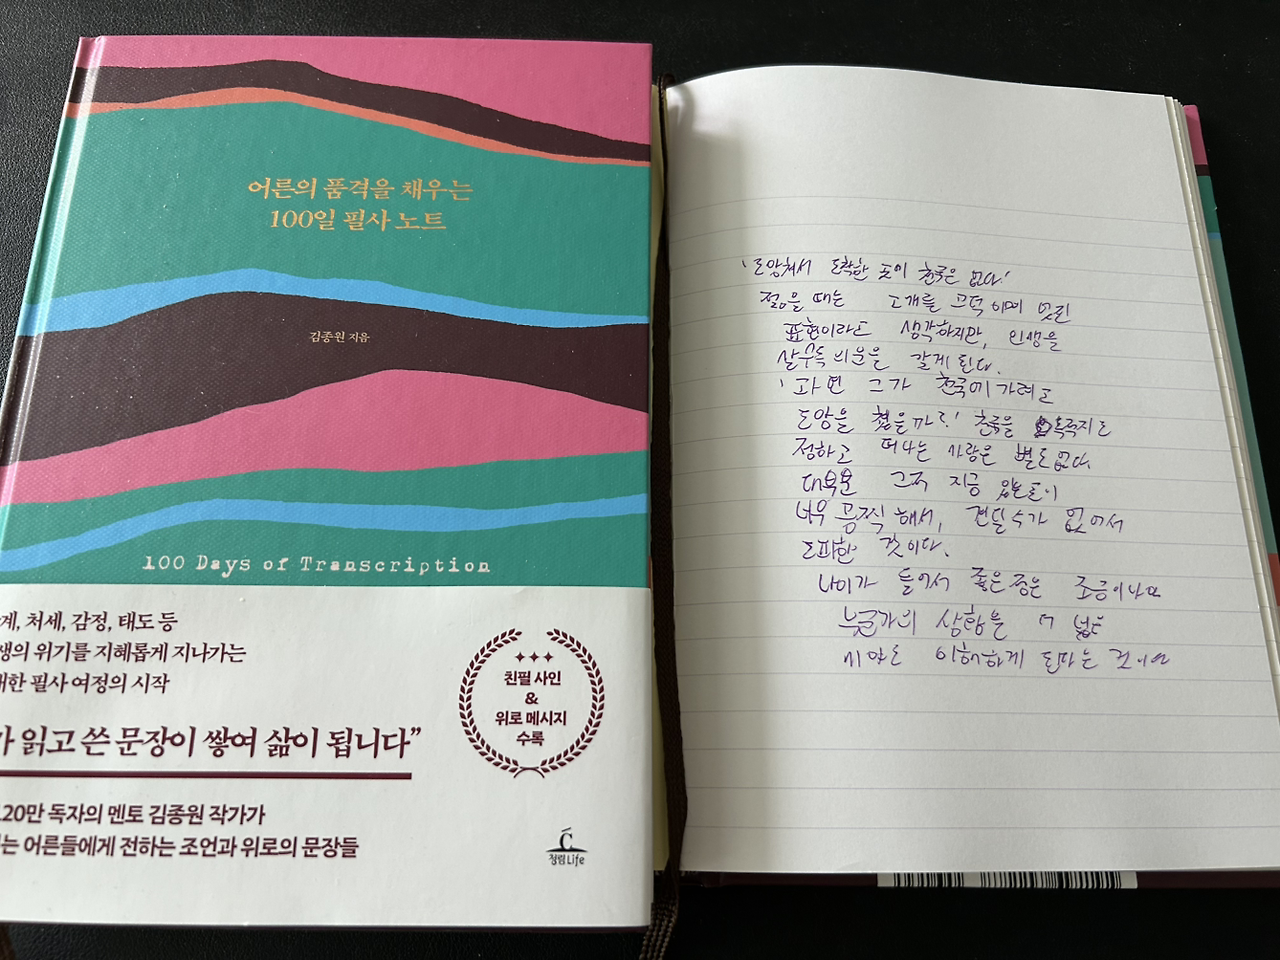 어른의 품격을 채우는
100일 필사 노트
김종원 지음
100 Days of Transcription
계, 처세, 감정, 태도 등
생의 위기를 지혜롭게 지나가는
한 필사 여정의 시작
가 읽고 쓴 문장이 쌓여 삶이 됩니다”
친필 사인
&
위로 메시지
수록
120만 독자의 멘토 김종원 작가가
는 어른들에게 전하는 조언과 위로의 문장들
청림Life
'도망쳐서 도착한 곳에 천국은 없다!'
젊을 때는 고개를 끄덕이며 멋진
표현이라고 생각하지만, 인생을
살수록 의문을 갖게 된다.
'과연 그가 천국에 가려고
도망을 쳤을까?' 천국을 목적지로
정하고 떠나는 사람은 별로 없다.
대부분 그저 지금 있는 곳이
너무 끔찍해서, 견딜 수가 없어서
도피한 것이다.
나이가 들어서 좋은 점은 조금이나마
누군가의 상황을 더 넓은
시야로 이해하게 된다는 것이다